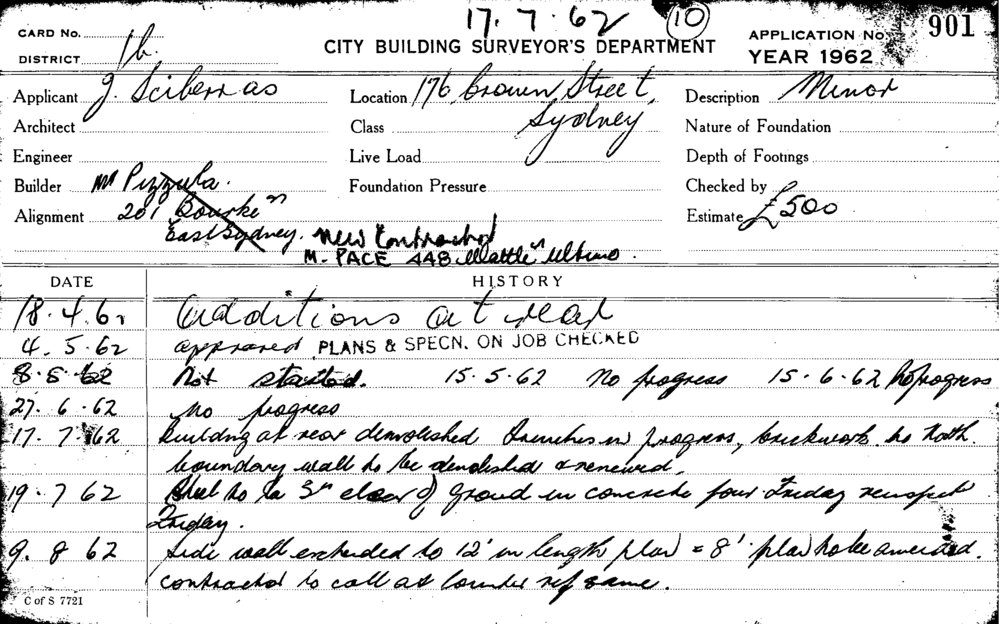 17.7.62 (10)
CARD No.
DISTRICT 1b.
CITY BUILDING SURVEYOR'S DEPARTMENT
APPLICATION No. 901
YEAR 1962
Applicant J. Sciberras
Location 176, Crown Street,
Sydney
Description Minor
Architect
Class
Nature of Foundation
Engineer
Live Load
Depth of Footings
Builder Mr Pizzula.
Foundation Pressure
Checked by
Alignment 201 Bourke St
Estimate £500
East Sydney. New Contractor
M. PACE 448 Wattle St Ultimo.
DATE HISTORY
18.4.62 Additions at rear
4.5.62 approved PLANS & SPECN. ON JOB CHECKED
8.5.62 Not started. 15.5.62 No progress 15.6.62 No progress
27.6.62 No progress
17.7.62 Building at rear demolished trenches in progress, brickwork to Noth.
boundary wall to be demolished & renewed.
19.7 62 Steel to be 3" clear of ground in concrete pour Friday reinspect
Friday.
9.8 62 side wall extended to 12' in length plan = 8' plan to be amended.
contractor to call at Counter ref same.
C of S 7721